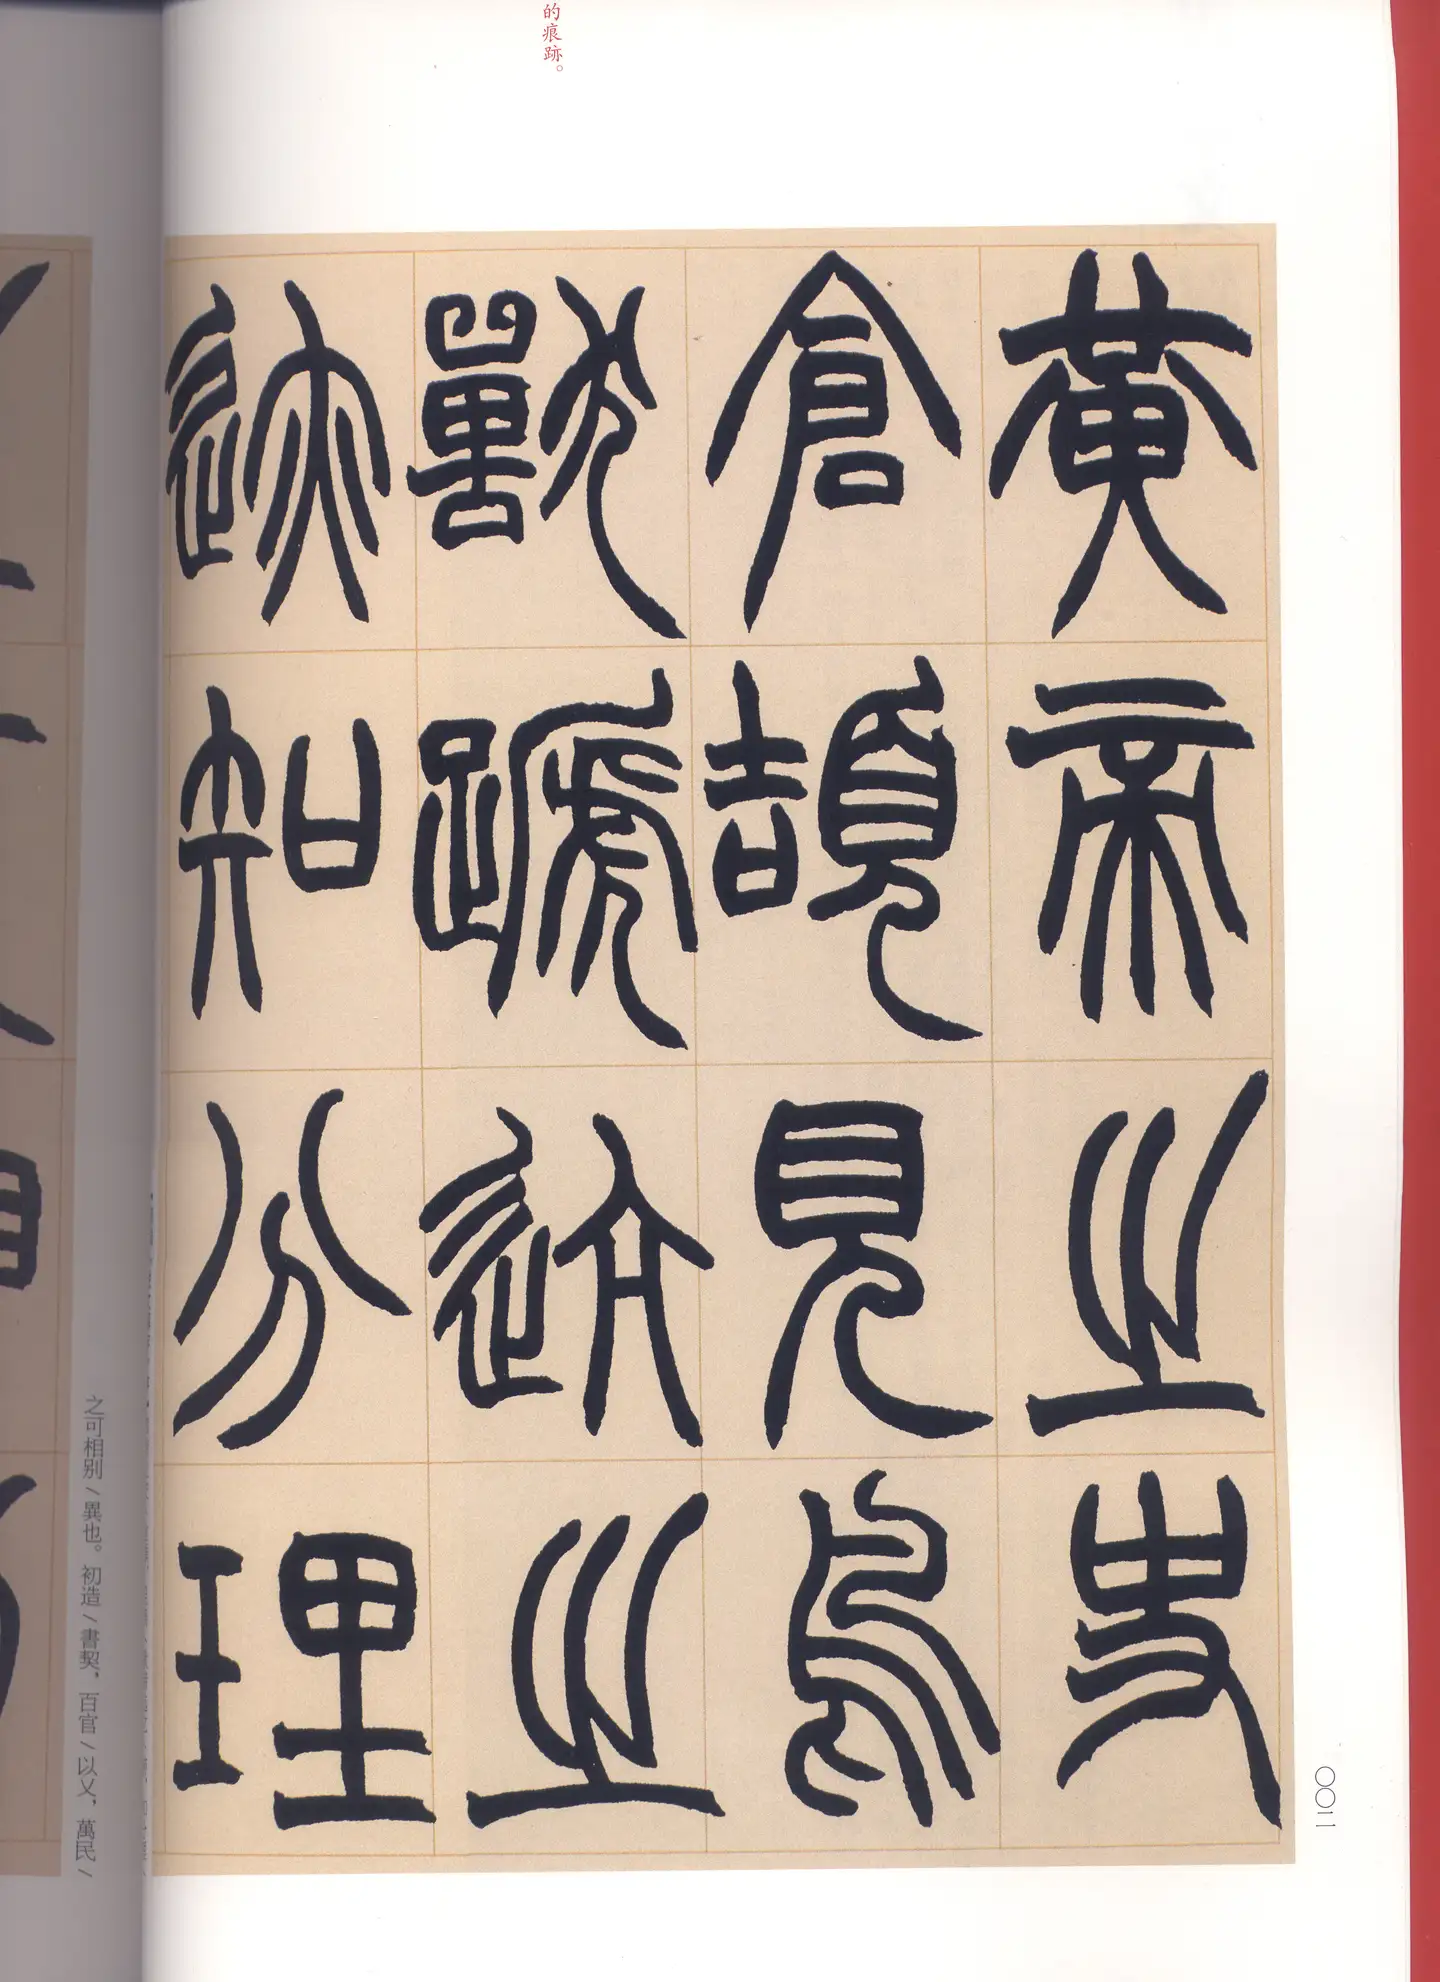 的痕跡。
黃帝之史
倉頡見鳥
獸蹏迒之
迹知分理
〇〇二
之可相別/異也。初造/書契，百官/以乂，萬民/